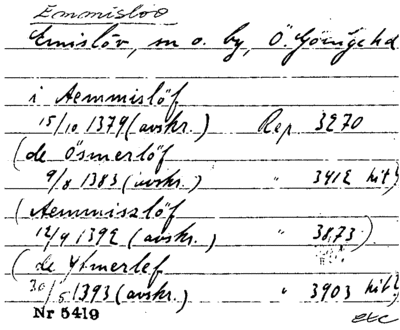 Emmislöv
Emislöv, sn o. by, Ö. Göinge hd
i Aemmislöf
15/10 1379 (avskr.) Rep 3270
(de Ösmerlöf
9/8 1383 (avskr.) " 3412 hit?)
(Aemmiszlöf
12/9 1392 (avskr.) " 3873)
(de Ytmerlef
30/5 1393 (avskr.) " 3903 hit?)
Nr 5419
etc